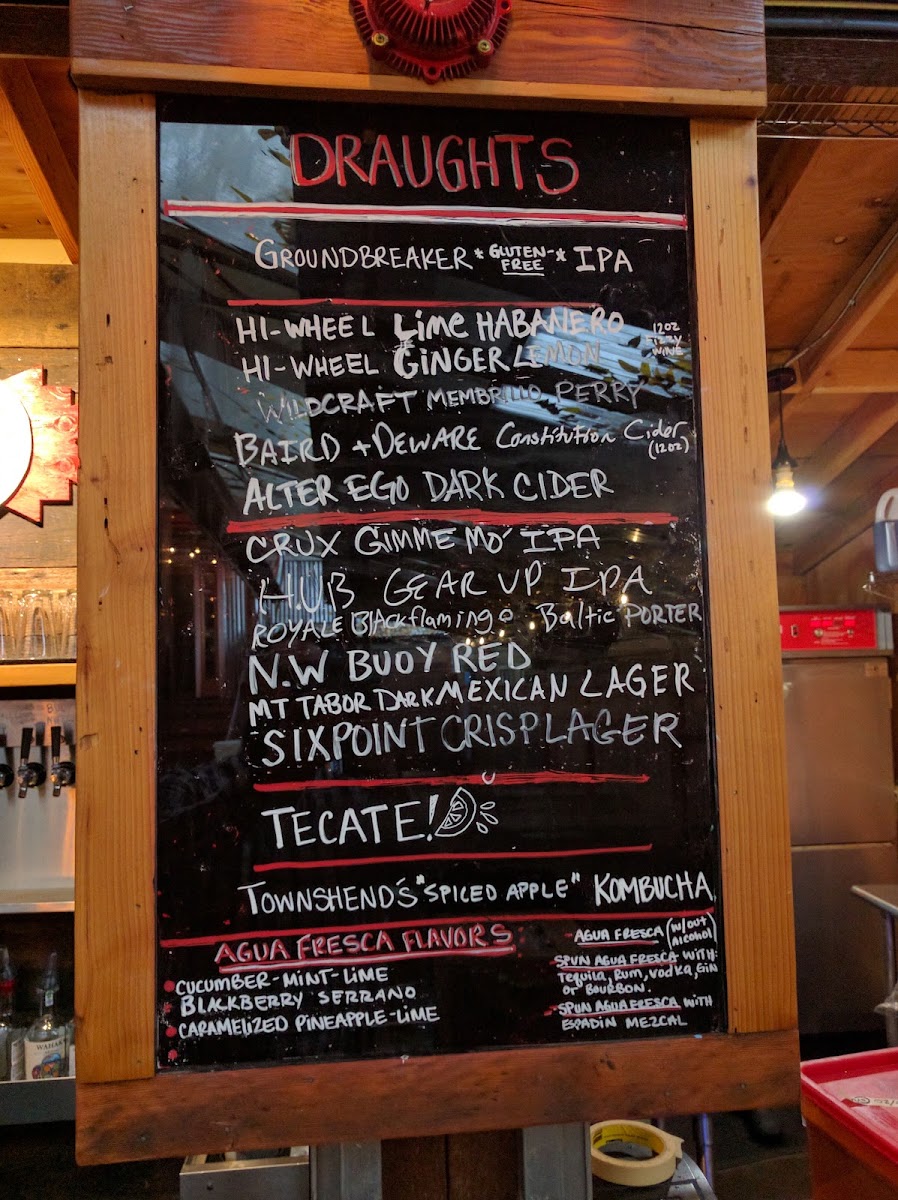 DRAUGHTS
GROUNDBREAKER * GLUTEN-FREE * IPA
HI-WHEEL Lime HABANERO
HI-WHEEL GINGER LEMON
12OZ FIZZY WINE
WILDCRAFT MEMBRILLO PERRY
BAIRD + DEWARE Constitution Cider (12oz)
ALTER EGO DARK CIDER
CRUX GIMME MO' IPA
H.U.B GEAR UP IPA
ROYALE Blackflamingo Baltic PORTER
N.W BUOY RED
MT TABOR DARK MEXICAN LAGER
SIXPOINT CRISP LAGER
TECATE!
TOWNSHEND'S "SPICED APPLE" KOMBUCHA
AGUA FRESCA FLAVORS:
CUCUMBER-MINT-LIME
BLACKBERRY SERRANO
CARAMELIZED PINEAPPLE-LIME
AGUA FRESCA (w/out Alcohol)
SPUN AGUA FRESCA WITH:
Tequila, Rum, Vodka, GIN
or BOURBON.
SPUN AGUA FRESCA WITH
ESPADIN MEZCAL